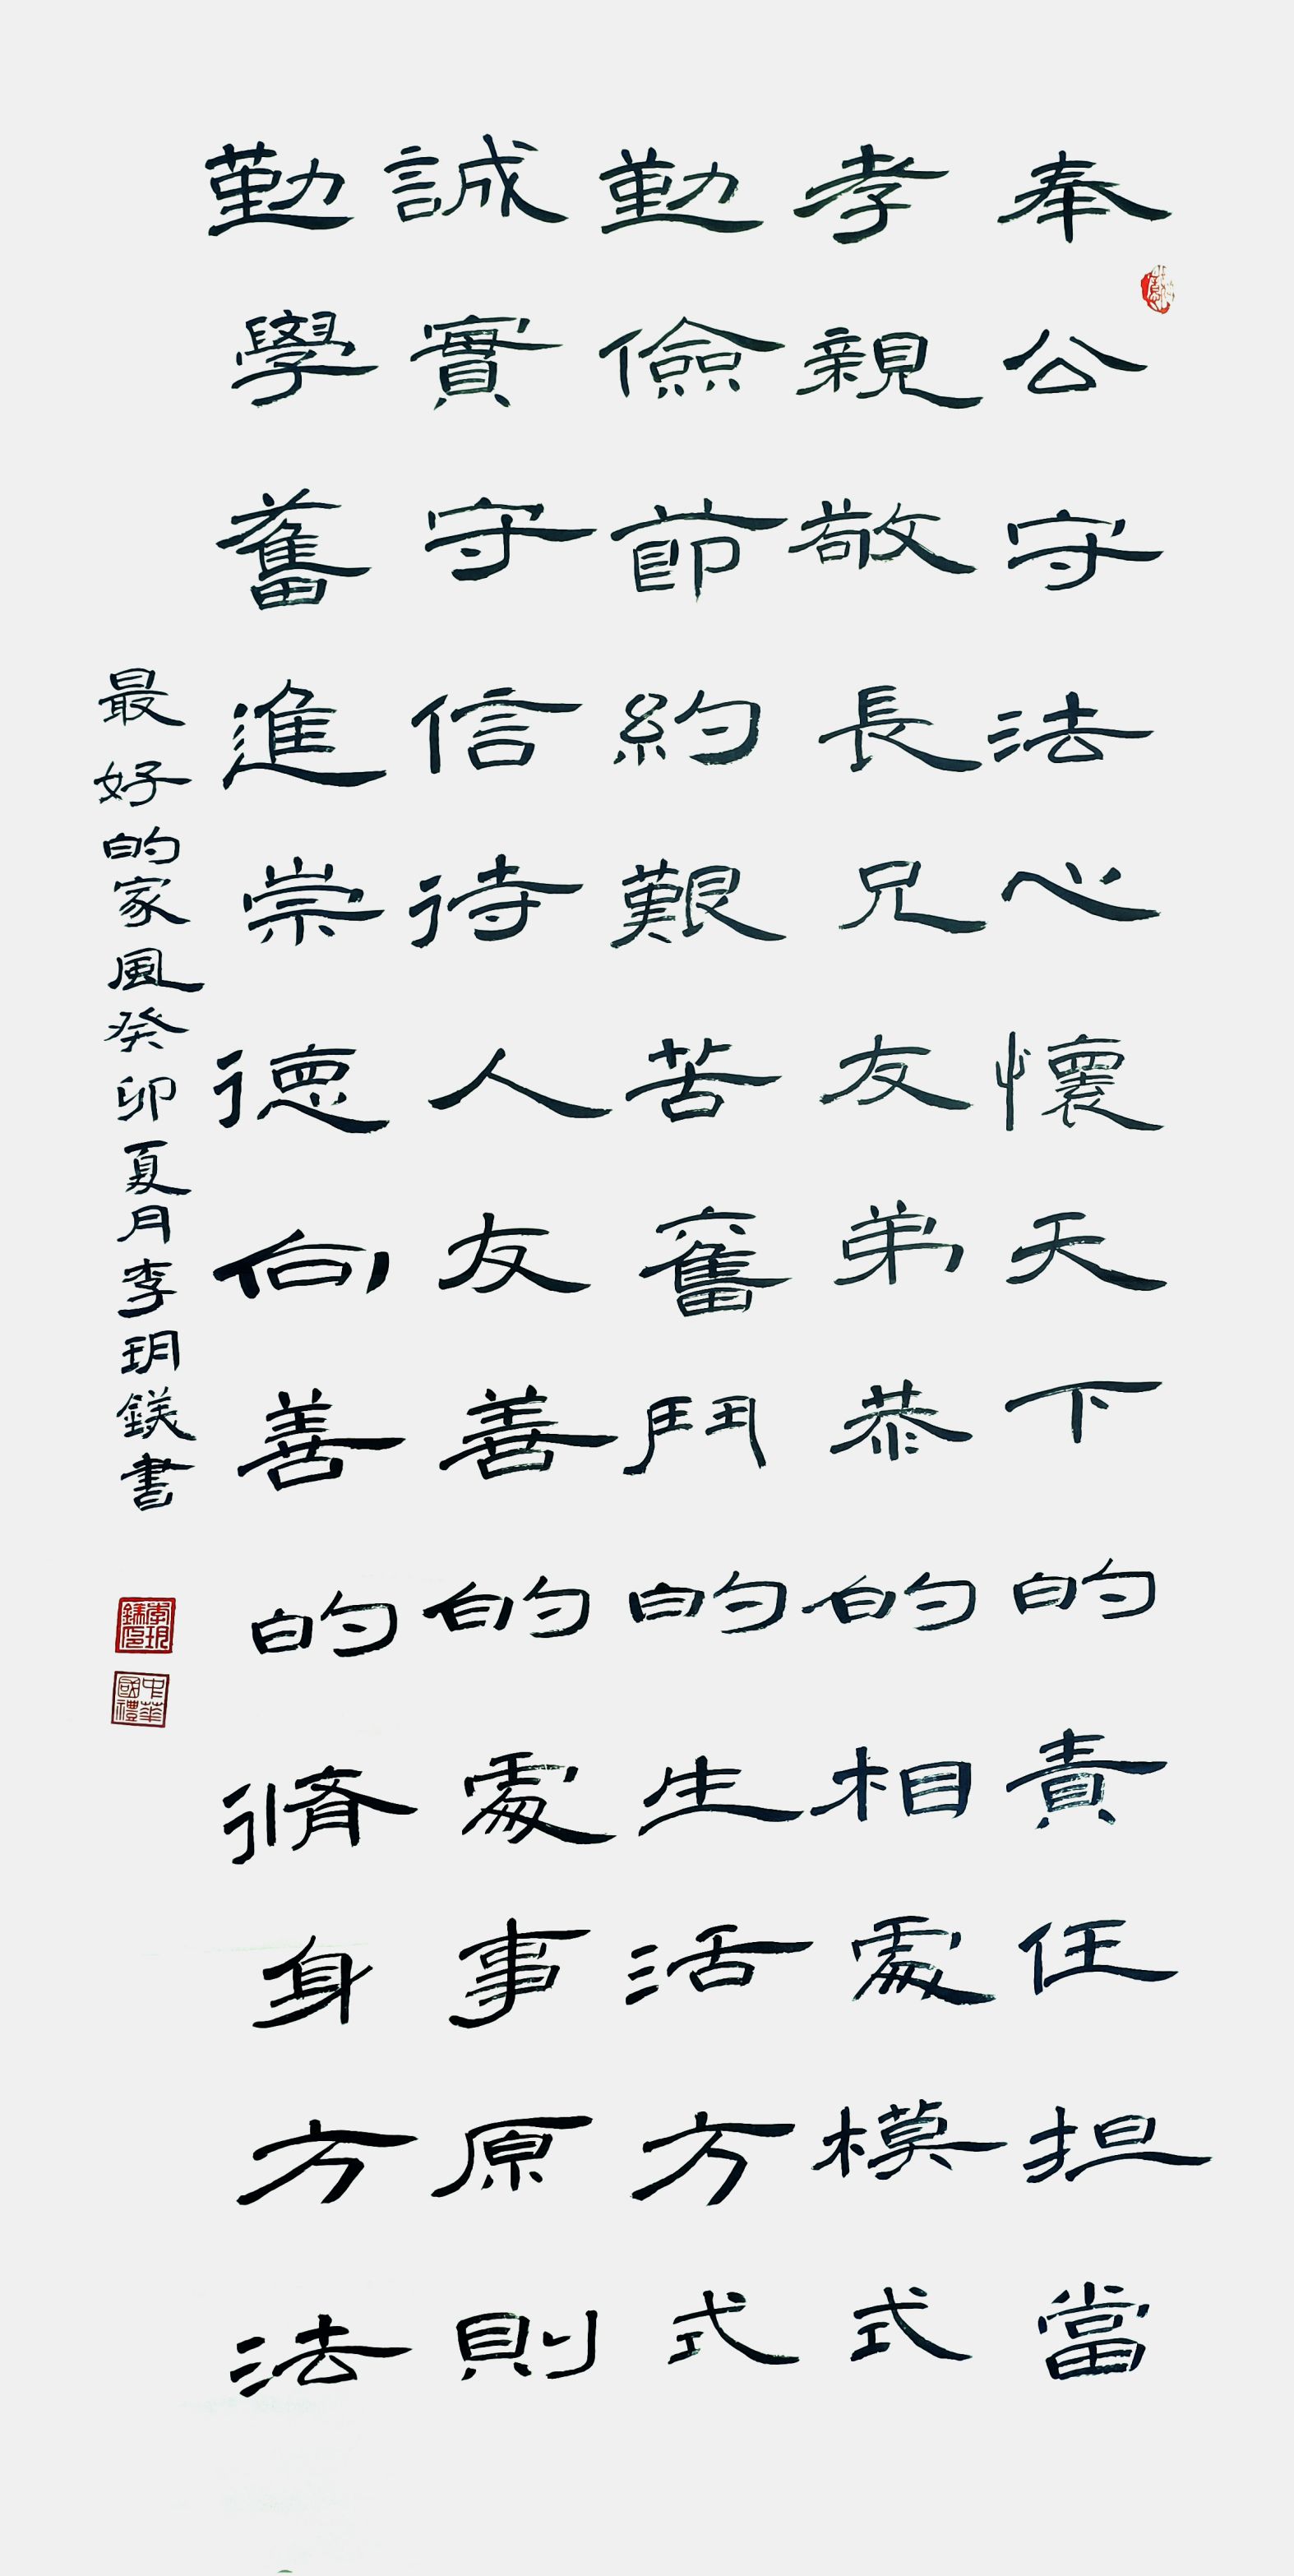 奉公守法心懷天下的責任担當
孝親敬長兄友弟恭的相處模式
勤儉節約艱苦奮鬥的生活方式
誠實守信待人友善的處事原則
勤學奮進崇德向善的脩身方法
最好的家風癸卯夏月李玥鎂書
中華國禮